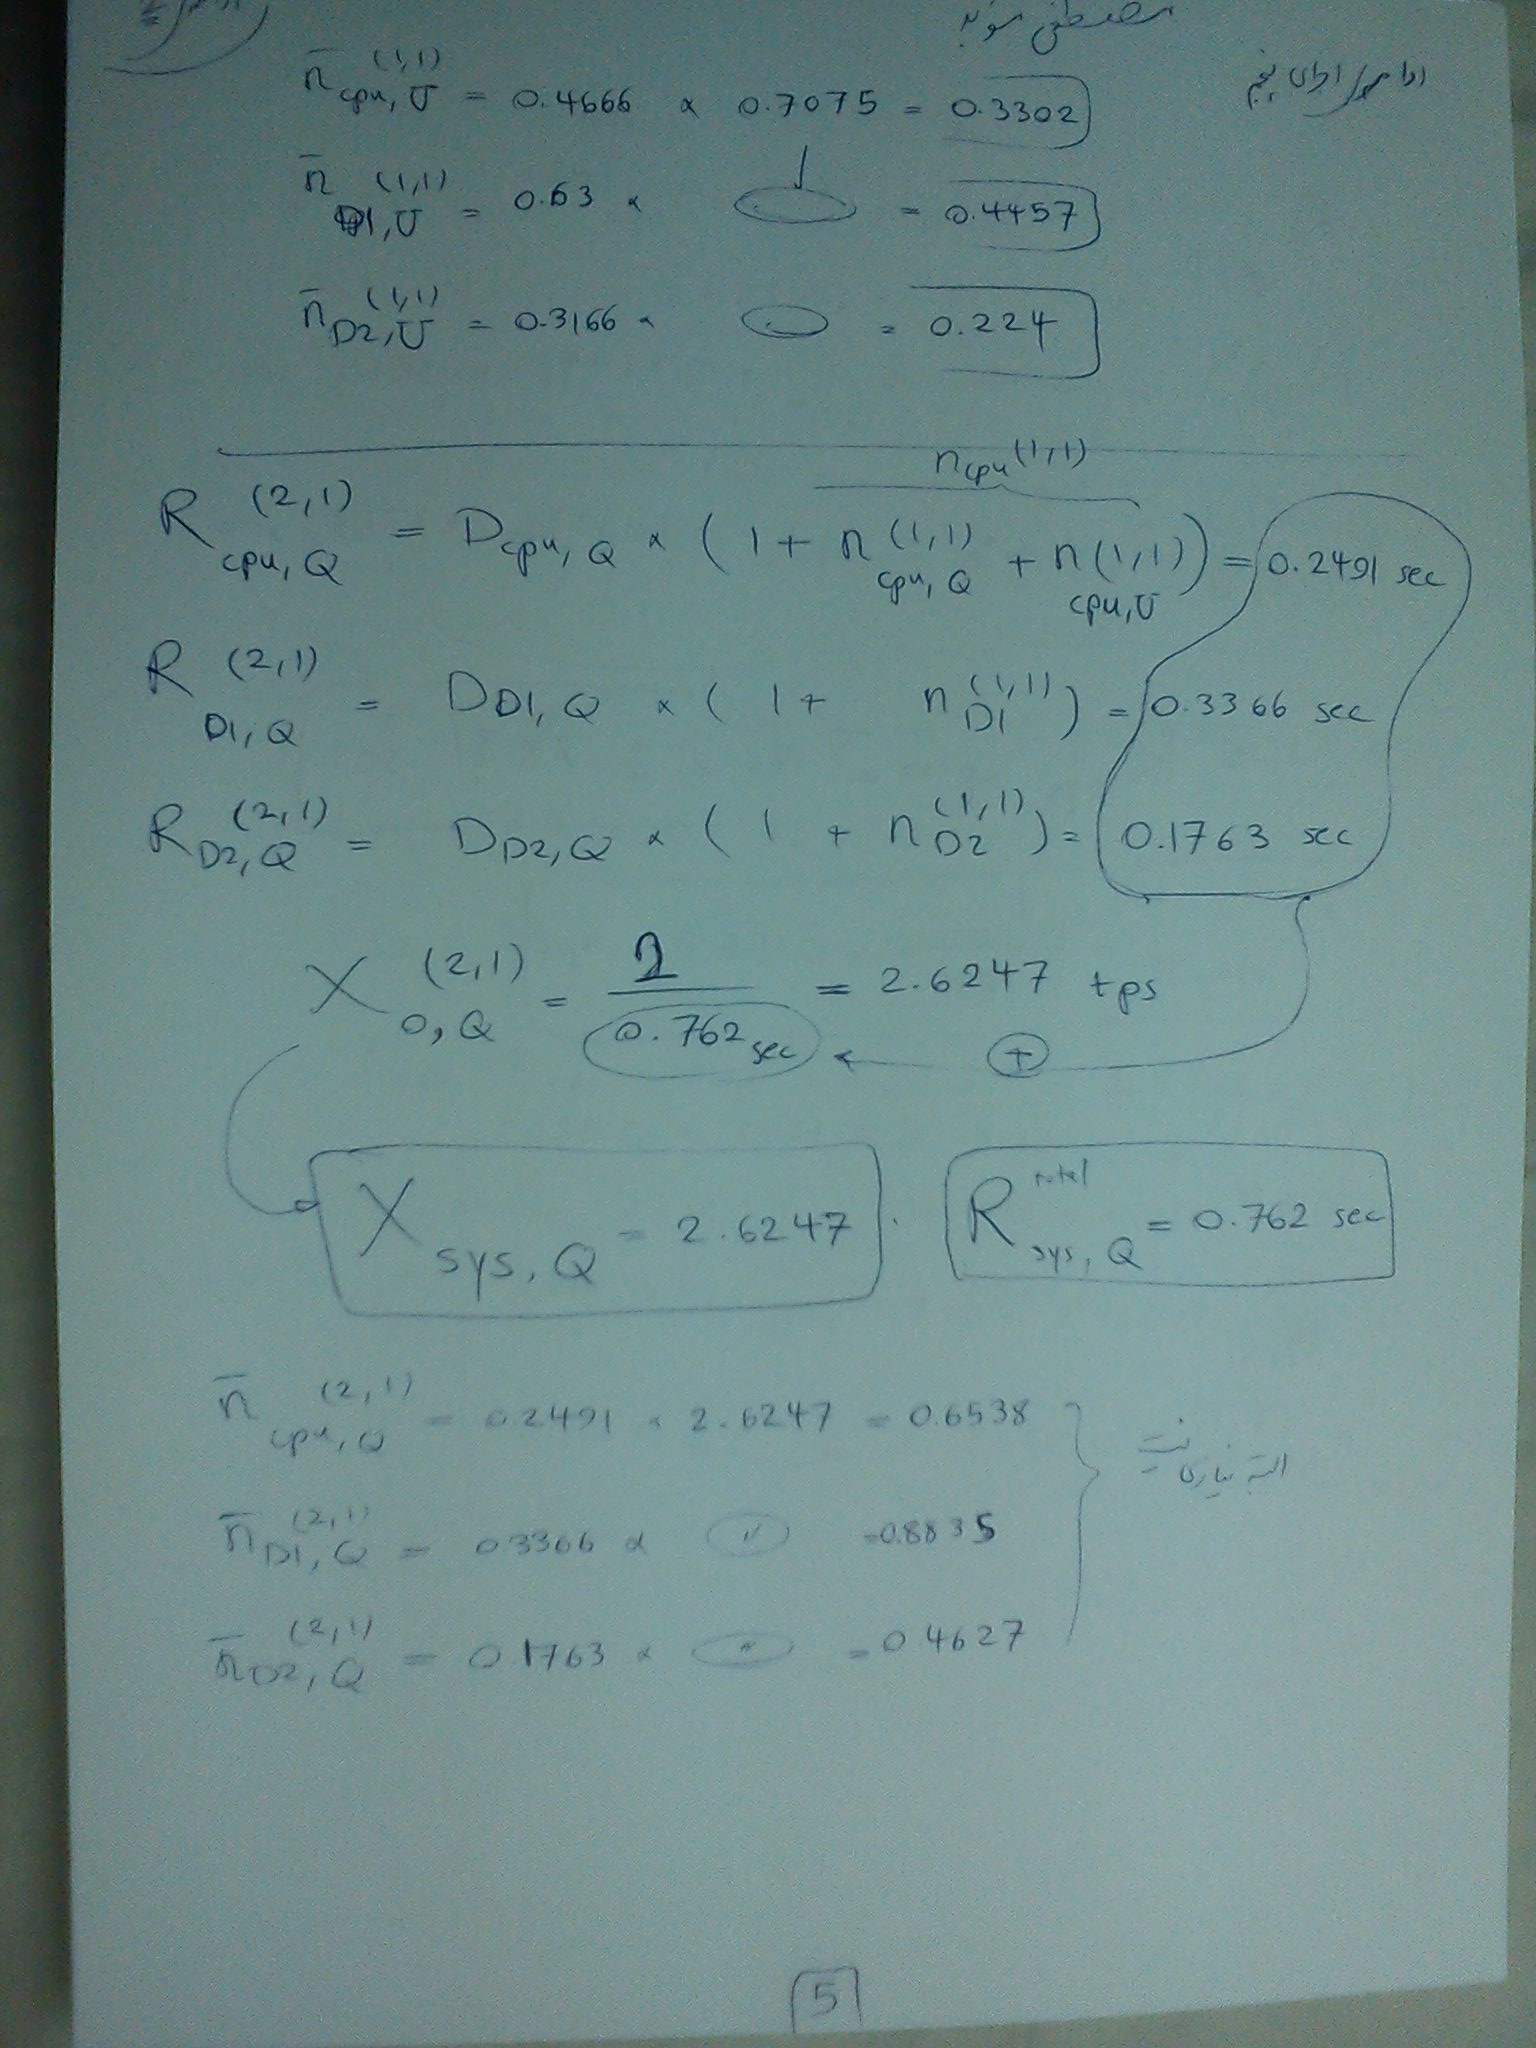 مصطفی موید
ادامه سوال پنجم
n̄ cpu,U (1,1) = 0.4666 × 0.7075 = 0.3302
n̄ D1,U (1,1) = 0.63 × = 0.4457
n̄ D2,U (1,1) = 0.3166 × = 0.224
n cpu (1,1)
R cpu,Q (2,1) = D cpu,Q × (1 + n cpu,Q (1,1) + n cpu,U (1,1)) = 0.2491 sec
R D1,Q (2,1) = D D1,Q × (1 + n D1 (1,1)) = 0.3366 sec
R D2,Q (2,1) = D D2,Q × (1 + n D2 (1,1)) = 0.1763 sec
X 0,Q (2,1) = 2 / 0.762 sec = 2.6247 tps
+
X sys,Q = 2.6247
R total sys,Q = 0.762 sec
n̄ cpu,Q (2,1) = 0.2491 × 2.6247 = 0.6538
n̄ D1,Q (2,1) = 0.3366 × " = 0.8835
n̄ D2,Q (2,1) = 0.1763 × " = 0.4627
البته نیازی نیست
5